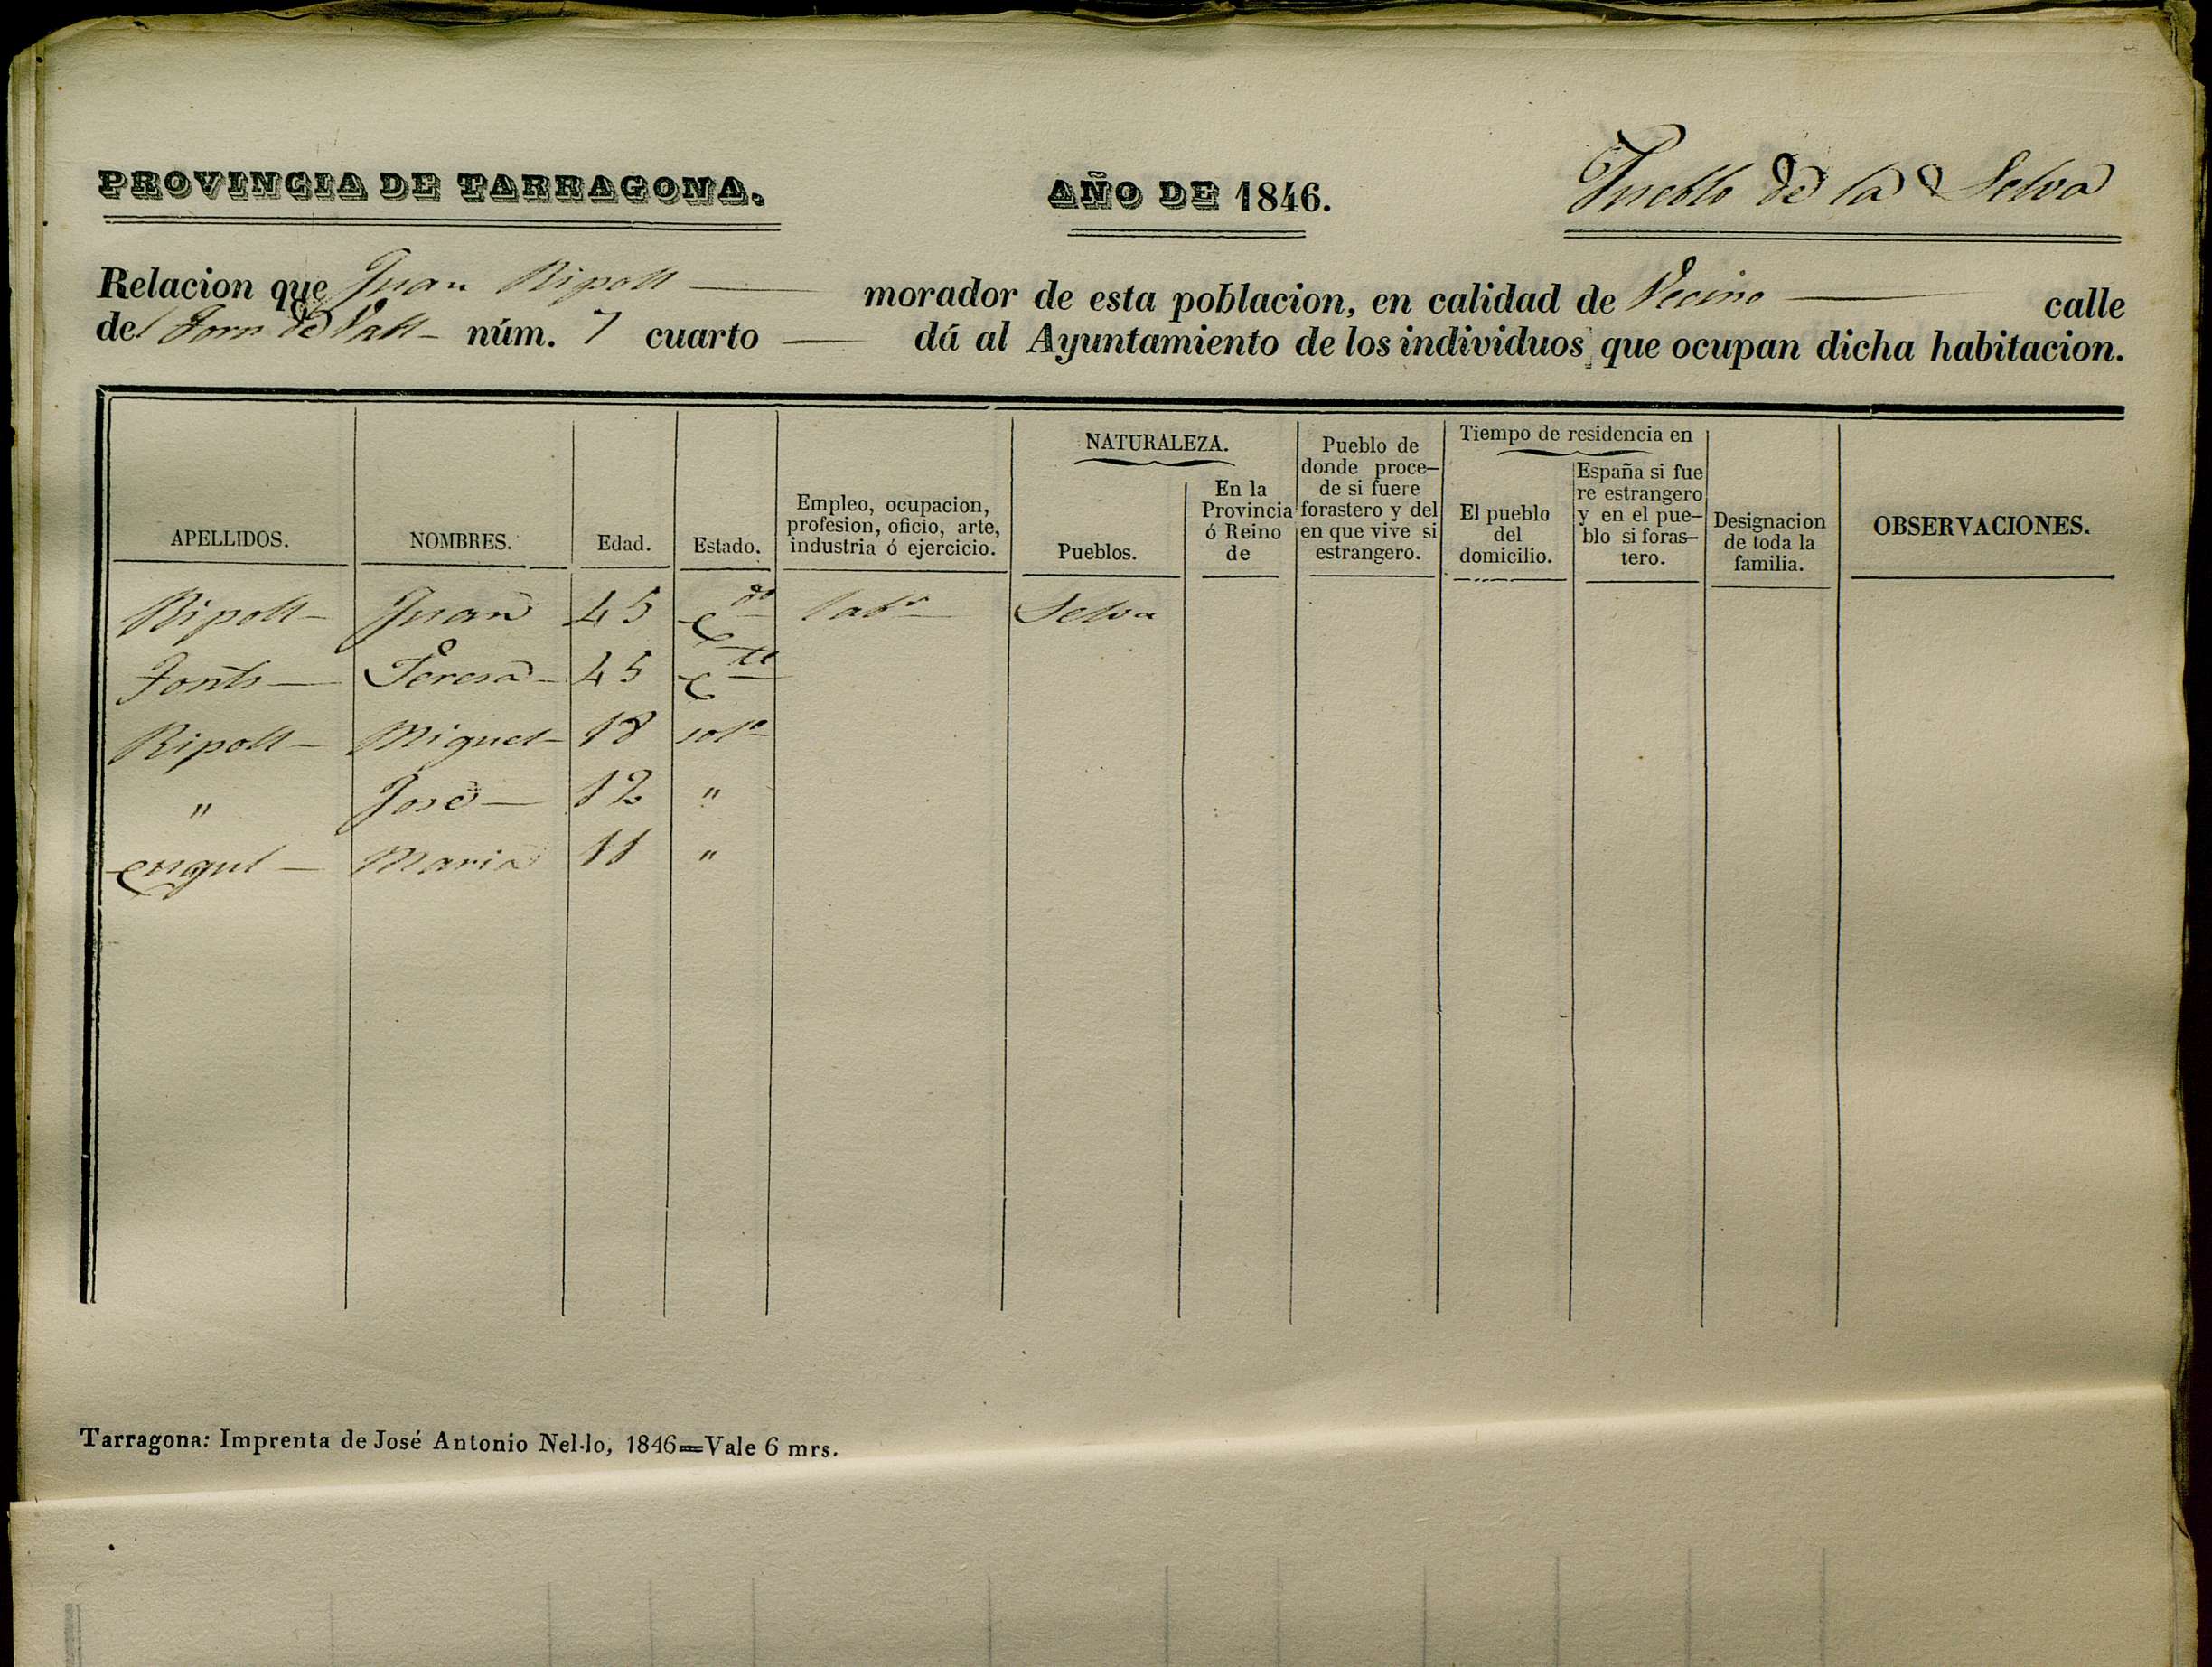 PROVINCIA DE TARRAGONA. AÑO DE 1846. Pueblo de la Selva
Relacion que Juan Ripoll — morador de esta poblacion, en calidad de Vecino — calle
del Forn de Vall - núm. 7 cuarto — dá al Ayuntamiento de los individuos que ocupan dicha habitacion.
APELLIDOS.
NOMBRES.
Edad.
Estado.
Empleo, ocupacion,
profesion, oficio, arte,
industria ó ejercicio.
NATURALEZA.
Pueblos.
En la
Provincia
ó Reino
de
Pueblo de
donde proce-
de si fuere
forastero y del
en que vive si
estrangero.
Tiempo de residencia en
El pueblo
del
domicilio.
España si fue
re estrangero
y en el pue-
blo si foras-
tero.
Designacion
de toda la
familia.
OBSERVACIONES.
Ripoll - Juan 45 Cdo labr Selva
Fonts — Teresa - 45 C
Ripoll - Miguel - 18 solo
" José — 12 "
Maria 11 "
Tarragona: Imprenta de José Antonio Nel·lo, 1846=Vale 6 mrs.